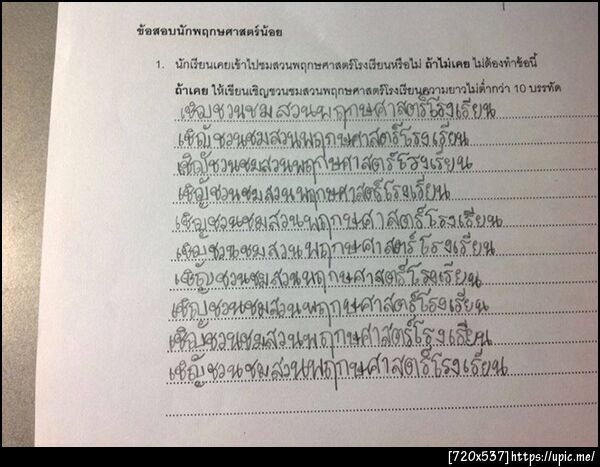 ข้อสอบนักพฤกษศาสตร์น้อย
1. นักเรียนเคยเข้าไปชมสวนพฤกษศาสตร์โรงเรียนหรือไม่ ถ้าไม่เคย ไม่ต้องทำข้อนี้
ถ้าเคย ให้เขียนเชิญชวนชมสวนพฤกษศาสตร์โรงเรียนความยาวไม่ต่ำกว่า 10 บรรทัด
เชิญชวนชมสวนพฤกษศาสตร์โรงเรียน
เชิญชวนชมสวนพฤกษศาสตร์โรงเรียน
เชิญชวนชมสวนพฤกษศาสตร์โรงเรียน
เชิญชวนชมสวนพฤกษศาสตร์โรงเรียน
เชิญชวนชมสวนพฤกษศาสตร์โรงเรียน
เชิญชวนชมสวนพฤกษศาสตร์โรงเรียน
เชิญชวนชมสวนพฤกษศาสตร์โรงเรียน
เชิญชวนชมสวนพฤกษศาสตร์โรงเรียน
เชิญชวนชมสวนพฤกษศาสตร์โรงเรียน
เชิญชวนชมสวนพฤกษศาสตร์โรงเรียน
[720x537]https://upic.me/